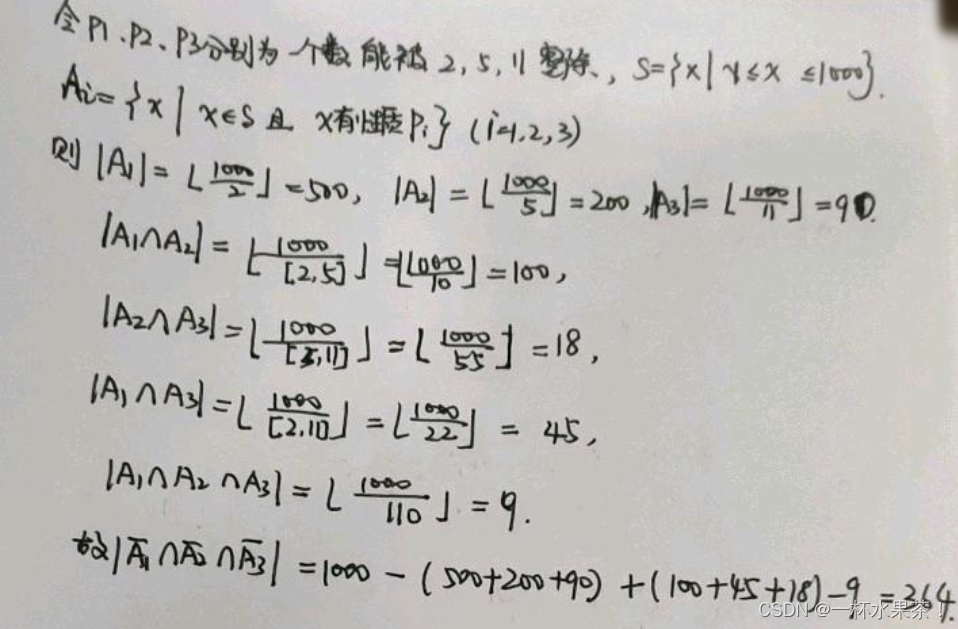 令P1、P2、P3分别为一个数能被2,5,11整除, S={x|1≤x≤1000}.
Ai={x|x∈S且x有性质Pi} (i=1,2,3)
则|A1|=⌊1000/2⌋=500, |A2|=⌊1000/5⌋=200, |A3|=⌊1000/11⌋=90.
|A1∩A2|=⌊1000/[2,5]⌋=⌊1000/10⌋=100,
|A2∩A3|=⌊1000/[5,11]⌋=⌊1000/55⌋=18,
|A1∩A3|=⌊1000/[2,11]⌋=⌊1000/22⌋=45,
|A1∩A2∩A3|=⌊1000/110⌋=9.
故|A̅1∩A̅2∩A̅3|=1000-(500+200+90)+(100+45+18)-9=364.
CSDN @一杯水果茶!